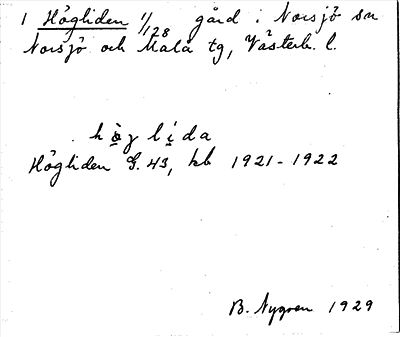 1 Högliden 1/128 gård i Norsjö sn
Norsjö och Malå tg, Västerb. l.
hö̀ʒli̜da
Högliden G. 43, kb 1921-1922
B. Nygren 1929